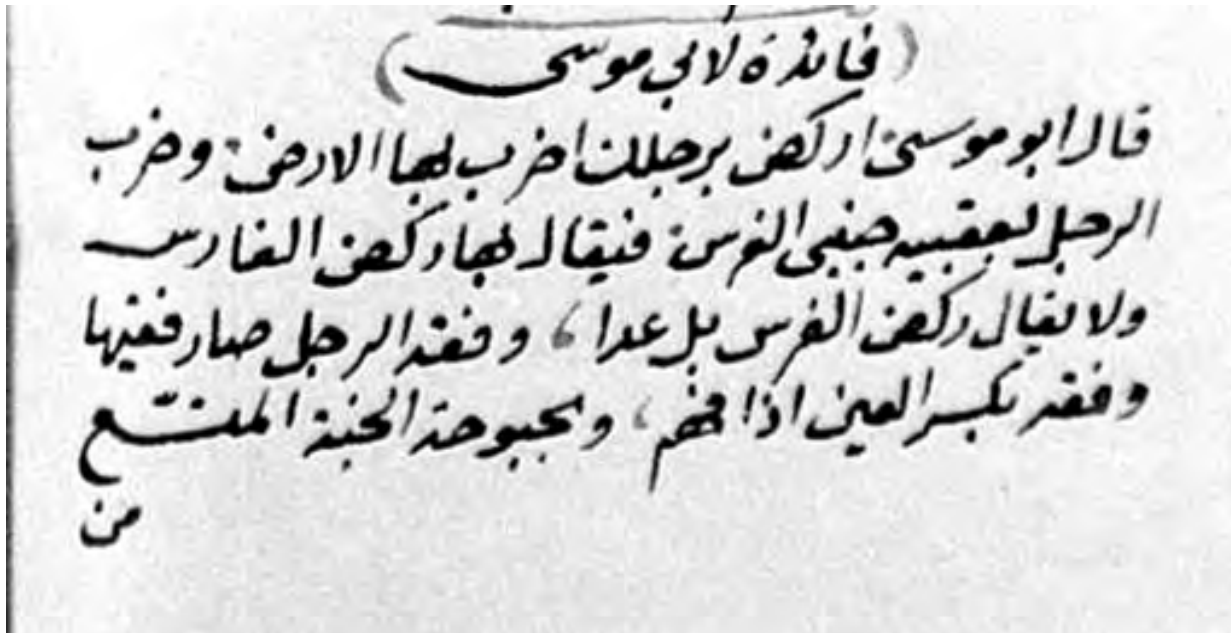 (فائدة لابي موسى)
قال ابو موسى اركض برجلك اضرب بها الارض، وضرب
الرجل بعقبيه جنبي الفرس، فيقال لها ركض الفارس
ولا يقال ركض الفرس بل عدا، وفقه الرجل صار فقيها
وفقه بكسر العين اذا فهم، وبحبوحة الجنة المتسّع
من